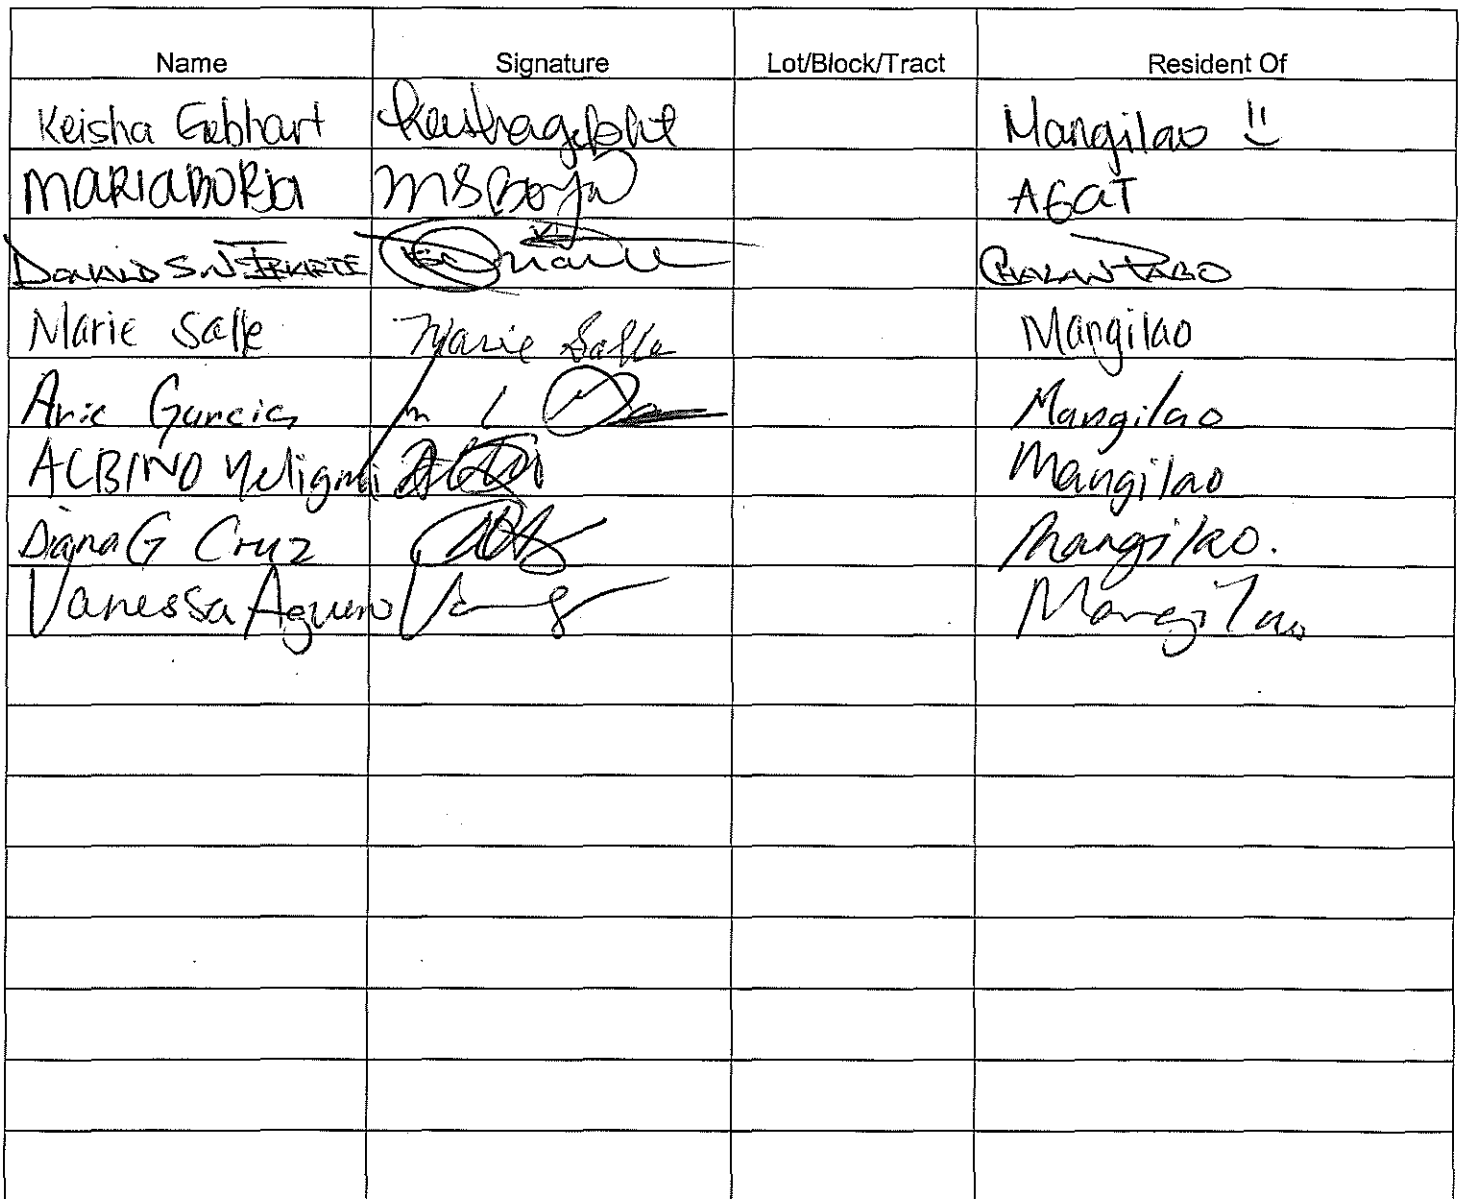 Name Signature Lot/Block/Tract Resident Of
Keisha Gebhart Keishagebhart Mangilao
MARIA BORJA MSBorja AGAT
DONALD S.N. CHALAN PAGO
Marie Salle Marie Salle Mangilao
Aric Garcia Mangilao
ALBINO Mangilao
Diana G Cruz Mangilao.
Vanessa Aguero Mangilao